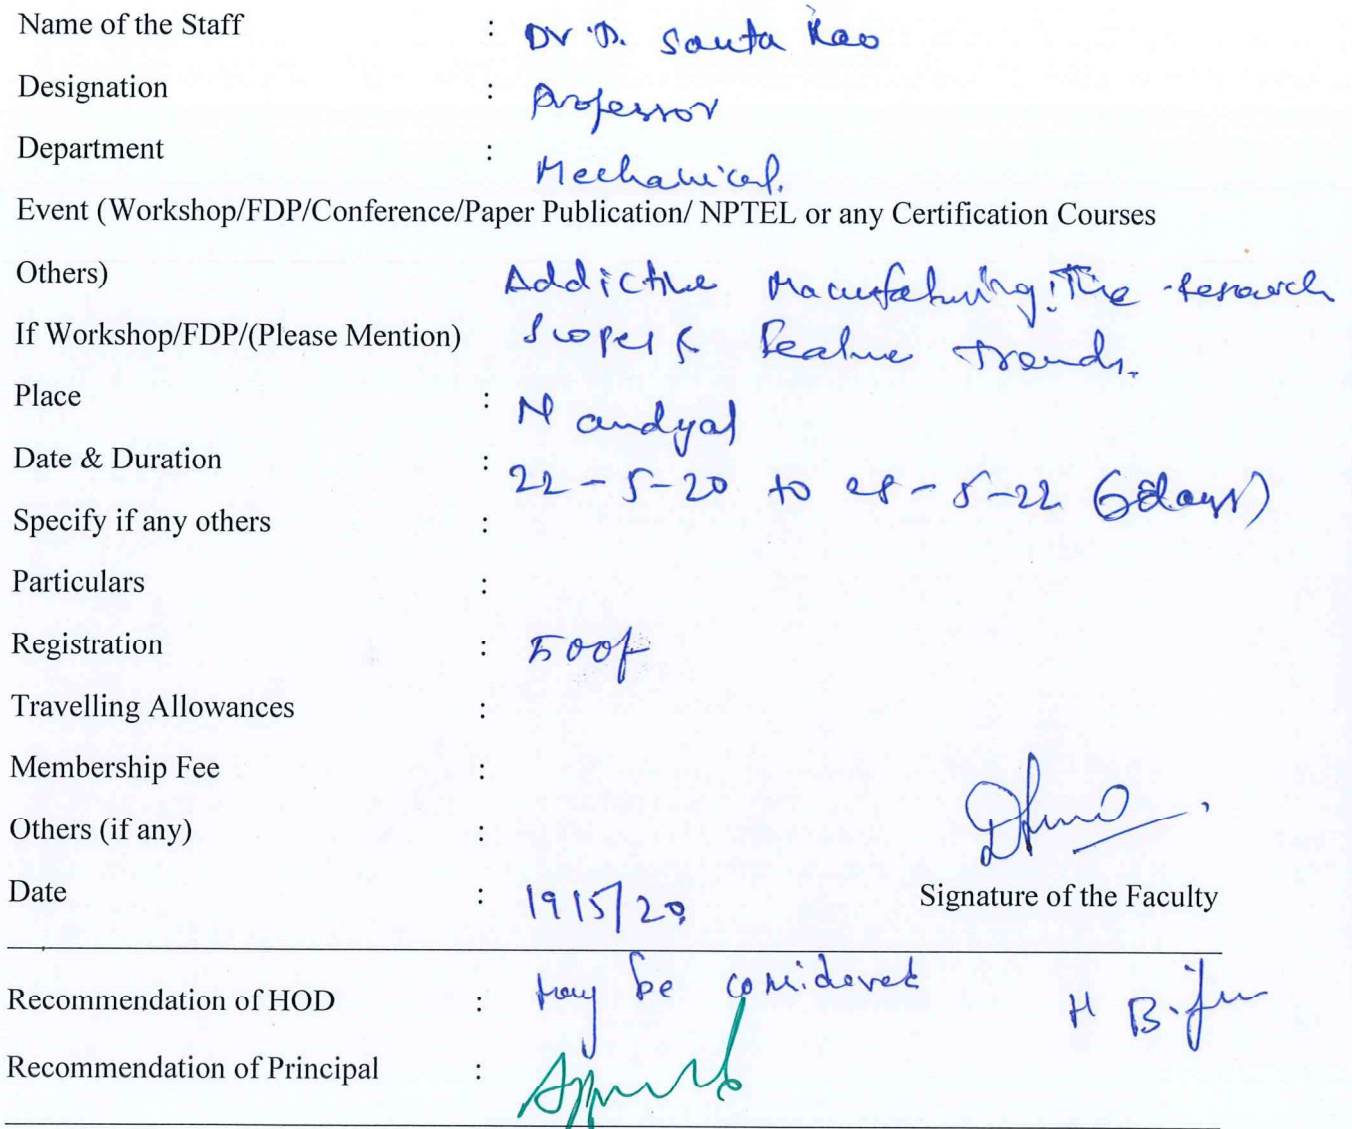 Name of the Staff : Dr D. Santa Rao
Designation : Professor
Department : Mechanical.
Event (Workshop/FDP/Conference/Paper Publication/ NPTEL or any Certification Courses
Others) Addictive Manufacturing: The research
If Workshop/FDP/(Please Mention) Scopes & trends.
Place : Nandyal
Date & Duration : 22-5-20 to 28-5-22 (6days)
Specify if any others :
Particulars :
Registration : 500/-
Travelling Allowances :
Membership Fee :
Others (if any) :
Date : 19/5/20
Signature of the Faculty
Recommendation of HOD : May be considered
Recommendation of Principal :